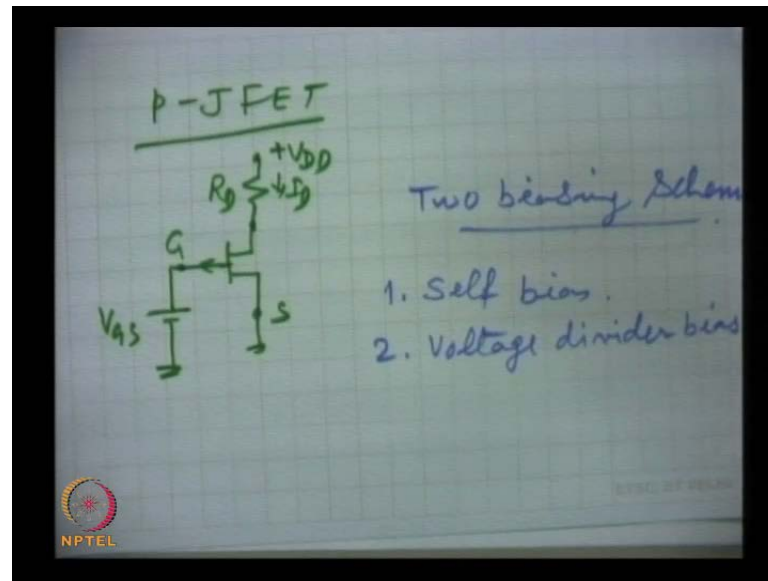 P-JFET
+VDD
RD ↓ID
G
VGS
S
Two biasing Schem
1. Self bias.
2. Voltage divider bias
NPTEL